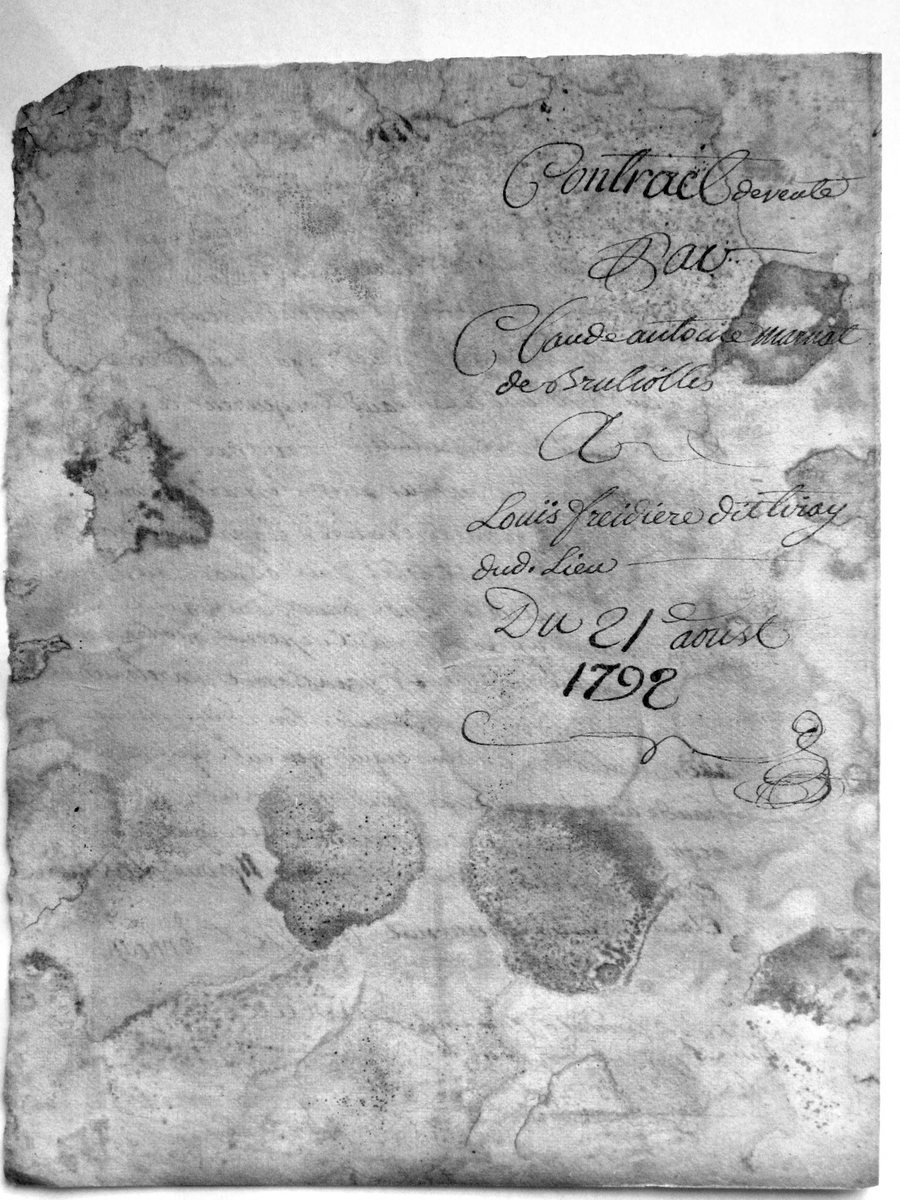 Contract de vente
Par
Claude antoine marnat
de Brulliolles
A
Louïs freidiere dit tiray
dud. Lieu
Du 21 aoust
1792